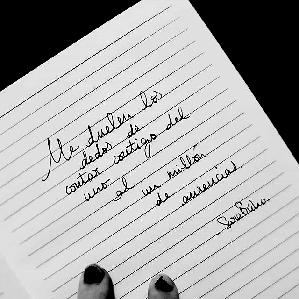 Me duelen los
dedos de
contar contigo del
uno al un millón
de ausencias.
Sara Bueno